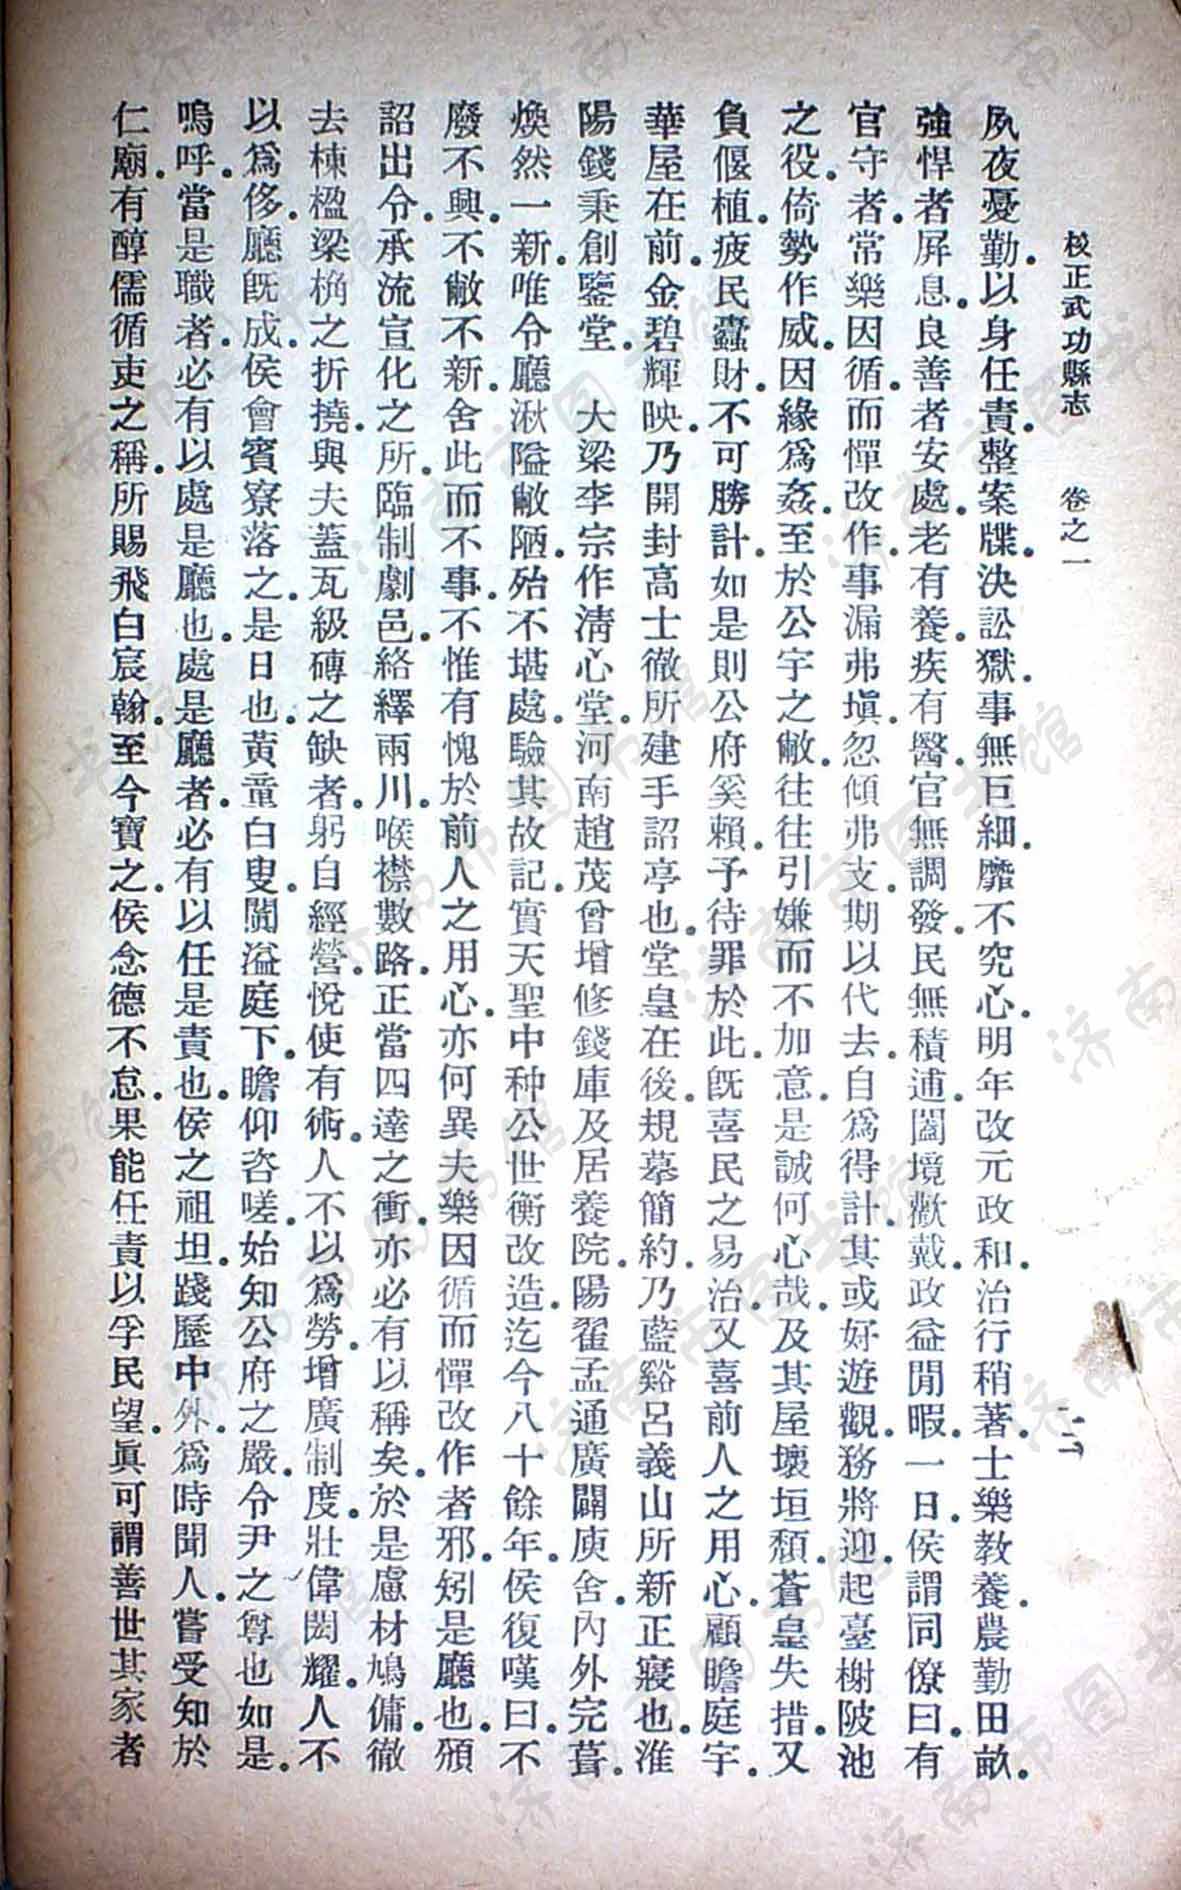 校正武功縣志　卷之一　十二
夙夜憂勤。以身任責。整案牒。決訟獄。事無巨細。靡不究心。明年改元政和。治行稍著。士樂教養。農勤田畝。
強悍者屏息。良善者安處。老有養。疾有醫。官無調發。民無積逋。闔境歡戴。政益閒暇。一日。侯謂同僚曰。有
官守者。常樂因循。而憚改作。事漏弗塡。忽傾弗支。期以代去。自爲得計。其或好遊觀。務將迎。起臺榭陂池
之役。倚勢作威。因緣爲姦。至於公宇之敝。往往引嫌而不加意。是誠何心哉。及其屋壞垣頹。蒼皇失措。又
負偃植。疲民蠹財。不可勝計。如是則公府奚賴。予待罪於此。旣喜民之易治。又喜前人之用心。顧瞻庭宇。
華屋在前。金碧輝映。乃開封高士徹所建手詔亭也。堂皇在後。規摹簡約。乃藍谿呂義山所新正寢也。淮
陽錢秉創鑒堂。大梁李宗作淸心堂。河南趙茂曾增修錢庫及居養院。陽翟孟通廣闢庾舍。內外完葺。
煥然一新。唯令廳湫隘敝陋。殆不堪處。驗其故記。實天聖中种公世衡改造。迄今八十餘年。侯復嘆曰。不
廢不興。不敝不新。舍此而不事。不惟有愧於前人之用心。亦何異夫樂因循而憚改作者邪。矧是廳也。頒
詔出令。承流宣化之所。臨制劇邑。絡繹兩川。喉襟數路。正當四達之衝。亦必有以稱矣。於是慮材鳩傭。徹
去棟楹梁桷之折撓。與夫蓋瓦級磚之缺者。躬自經營。悅使有術。人不以爲勞。增廣制度。壯偉閎耀。人不
以爲侈。廳旣成。侯會賓寮落之。是日也。黃童白叟。闐溢庭下。瞻仰咨嗟。始知公府之嚴。令尹之尊也如是。
嗚呼。當是職者。必有以處是廳也。處是廳者。必有以任是責也。侯之祖坦。踐歷中外。爲時聞人。嘗受知於
仁廟。有醇儒循吏之稱。所賜飛白宸翰。至今寶之。侯念德不怠。果能任責以孚民望。眞可謂善世其家者